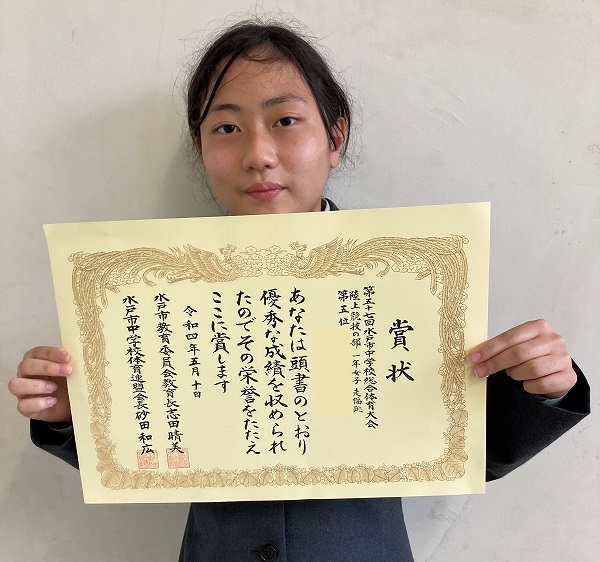 賞状
第五十七回水戸市中学校総合体育大会
陸上競技の部 一年女子 走幅跳
第五位
あなたは頭書のとおり
優秀な成績を収められ
たのでその栄誉をたたえ
ここに賞します
令和四年五月十日
水戸市教育委員会教育長志田晴美
水戸市中学校体育連盟会長砂田和広